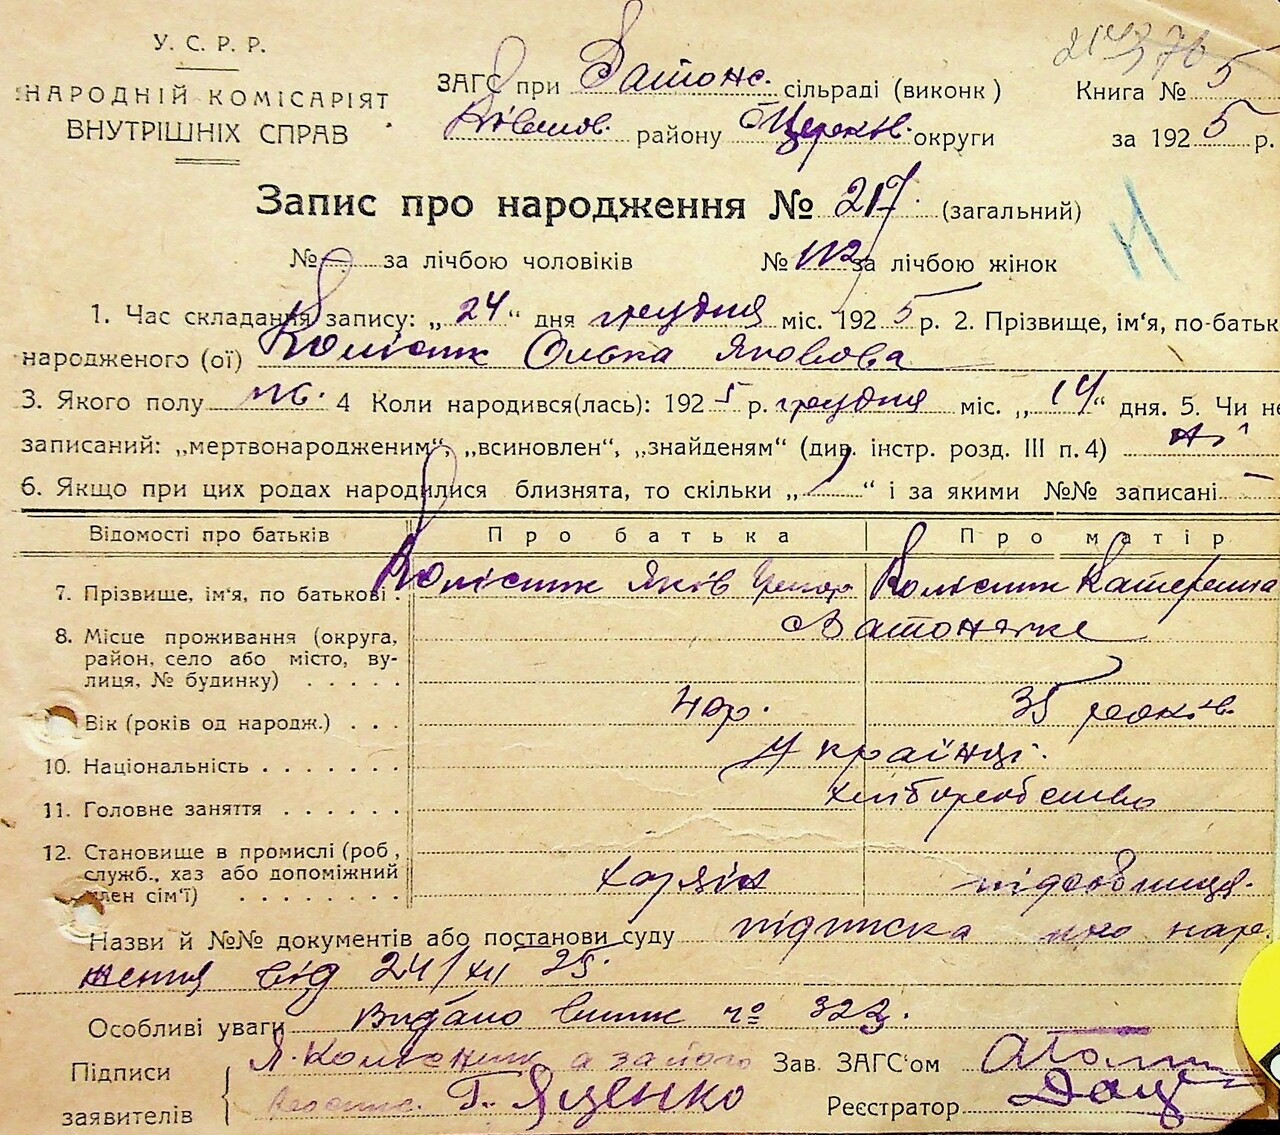 У. С. Р. Р.
НАРОДНІЙ КОМІСАРІЯТ
ВНУТРІШНІХ СПРАВ
ЗАГС при Затонс. сільраді (виконк)
району Б Церков. округи
Книга № 5
за 1925 р.
Запис про народження № 217. (загальний)
№ за лічбою чоловіків № 112 за лічбою жінок
1. Час складання запису: „24“ дня грудня міс. 1925 р. 2. Прізвище, ім'я, по-батьк
народженого (ої) Колісник Олька Яковова
3. Якого полу ж. 4 Коли народився(лась): 1925 р. грудня міс. „14“ дня. 5. Чи не
записаний: „мертвонародженим“, „всиновлен“, „знайденям“ (див. інстр. розд. III п. 4) ні
6. Якщо при цих родах народилися близнята, то скільки „ “ і за якими №№ записані
Відомості про батьків Про батька Про матір
7. Прізвище, ім'я, по батькові. Колісник Яків Григор Колісник Катерина
8. Місце проживання (округа,
район, село або місто, ву-
лиця, № будинку)
Вік (років од народж.) 35 років
10. Національність Українці.
11. Головне заняття хліборобство
12. Становище в промислі (роб,
служб., хаз або допоміжний
член сім'ї) хазяїн
Назви й №№ документів або постанови суду підписка про наро
ження від 24/XII 25.
Особливі уваги Видано випис № 322.
Підписи
заявителів
Я. Колісник а за його
Г. Яценко
Зав. ЗАГС'ом
Реєстратор